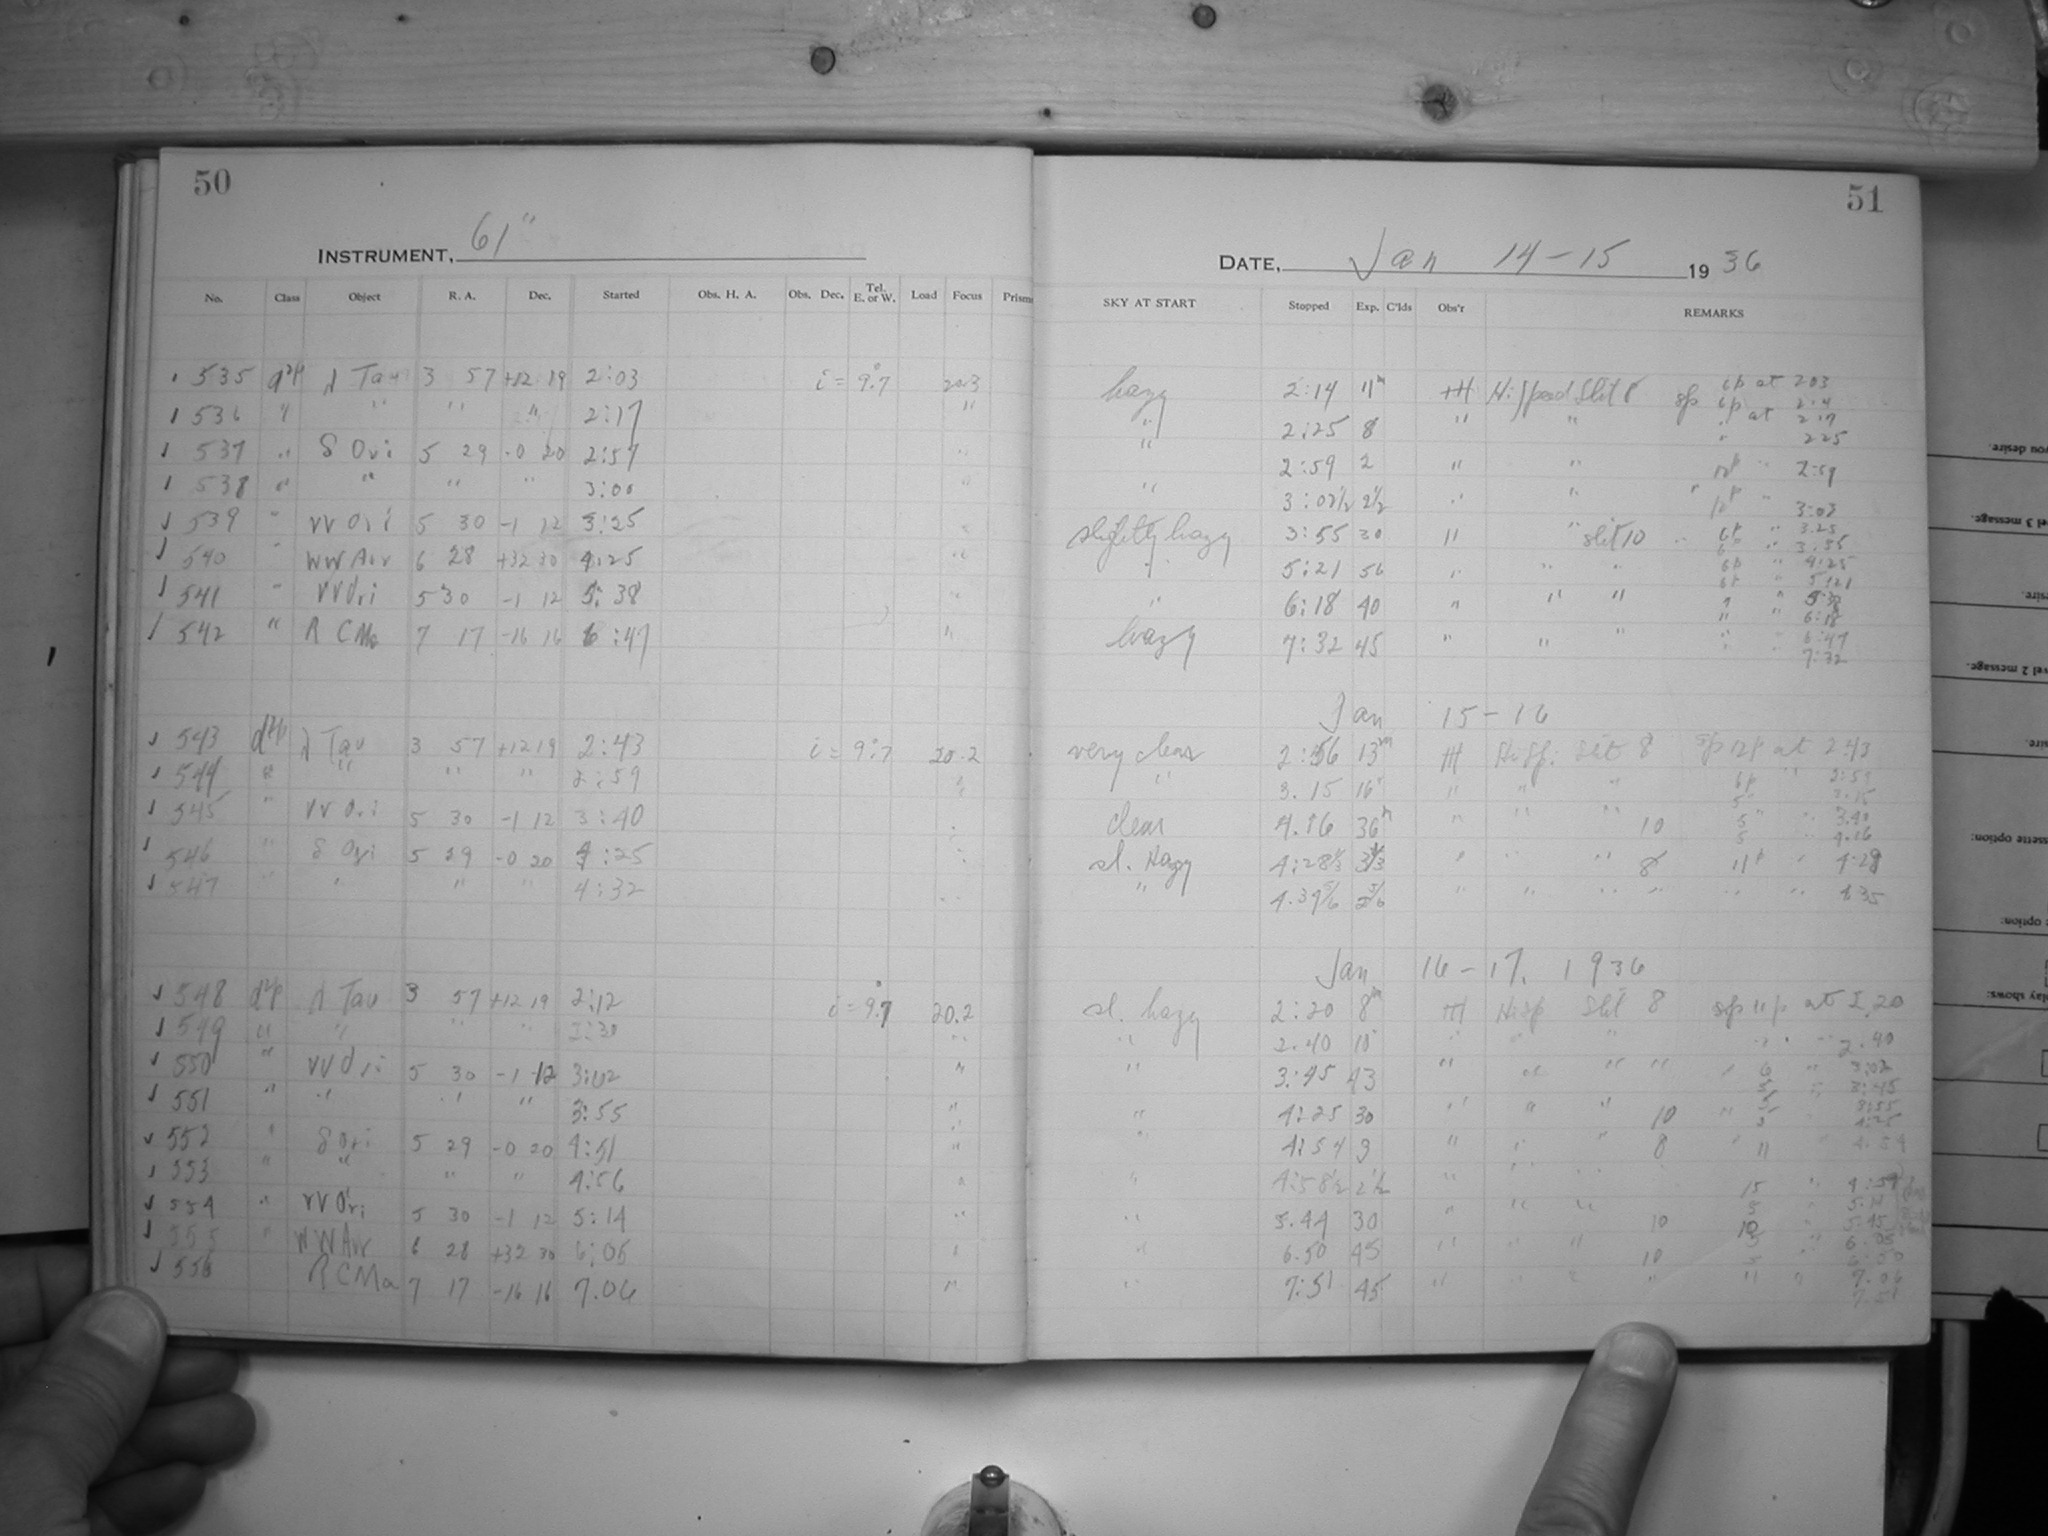 50
INSTRUMENT, 61"
No. Class Object R. A. Dec. Started Obs. H. A. Obs. Dec. Tel. E. or W. Load Focus Prism
535 λ Tau 3 57 +12 19 2:03 i = 9.7 20.3
536 " " " " 2:17 "
537 " δ Ori 5 29 -0 20 2:57 "
538 " " " " 3:00 "
539 " VV Ori 5 30 -1 12 3:25 "
540 " WW Aur 6 28 +32 30 4:25 "
541 " VV Ori 5 30 -1 12 5:38 "
542 " R CMa 7 17 -16 16 6:47 "
543 λ Tau 3 57 +12 19 2:43 i = 9.7 20.2
544 " " " " 2:59 "
545 " VV Ori 5 30 -1 12 3:40 "
546 " δ Ori 5 29 -0 20 4:25 "
547 " " " " 4:32 "
548 λ Tau 3 57 +12 19 2:12 i = 9.7 20.2
549 " " " " 2:30 "
550 " VV Ori 5 30 -1 12 3:02 "
551 " " " " 3:55 "
552 " δ Ori 5 29 -0 20 4:51 "
553 " " " " 4:56 "
554 " VV Ori 5 30 -1 12 5:14 "
555 " WW Aur 6 28 +32 30 6:05 "
556 R CMa 7 17 -16 16 7.06 "
51
DATE, Jan 14-15 1936
SKY AT START Stopped Exp. C'lds Obs'r REMARKS
hazy 2:14 11m H Hi Speed Slit 8 sp 6p at 203
" 2:25 8 " " at 2:17
225
" 2:59 2 " " " 2:59
" 3:02½ 2½ " " " 3:03
slightly hazy 3:55 30 " " slit 10 " 6p " 3:25
" 3:55
" 5:21 56 " " " 6p " 4:25
6p " 5:21
" 6:18 40 " " " " 5:38
" " 6:18
hazy 7:32 45 " " " " " 6:47
7:32
Jan 15-16
very clear 2:56 13m H Hi Sp. Slit 8 sp 12p at 2:43
" 3.15 16 " " " 6p " 2:59
3:15
clear 4.16 36m " " " 10 5 " 3:40
5 " 4:16
sl. Hazy 4:28⅓ 3⅓ " " " 8 11p " 4:28
" 4.34⅚ 2⅚ " " " " " " 4 35
Jan 16-17. 1936
sl. hazy 2:20 8m H Hi sp Slit 8 sp 11p at 2.20
" 2.40 10 " " " " " 2.40
" 3:45 43 " " " " " 6 " 3:02
5 " 3:45
" 4:25 30 " " " 10 " 5 3:55
5 4:25
" 4:54 3 " " " 8 " 11 " 4:54
" 4:58½ 2½ " " " 15 " 4:59
" 5.44 30 " " " 10 5 5:14
10 " 5:45
" 6.50 45 " " " 10 5 " 6:05
5 6:50
" 7:51 45 " " " " " " 7.06
7.51
you desire.
vel 3 message.
sire.
vel 2 message.
sire.
ssette option:
e option:
play shows: